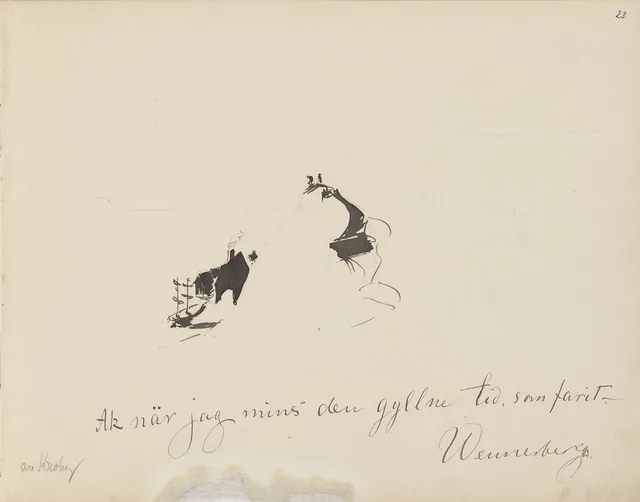 23
Ak när jag mins den gyllne tid, som farit–
Wennerberg.
av Kroby